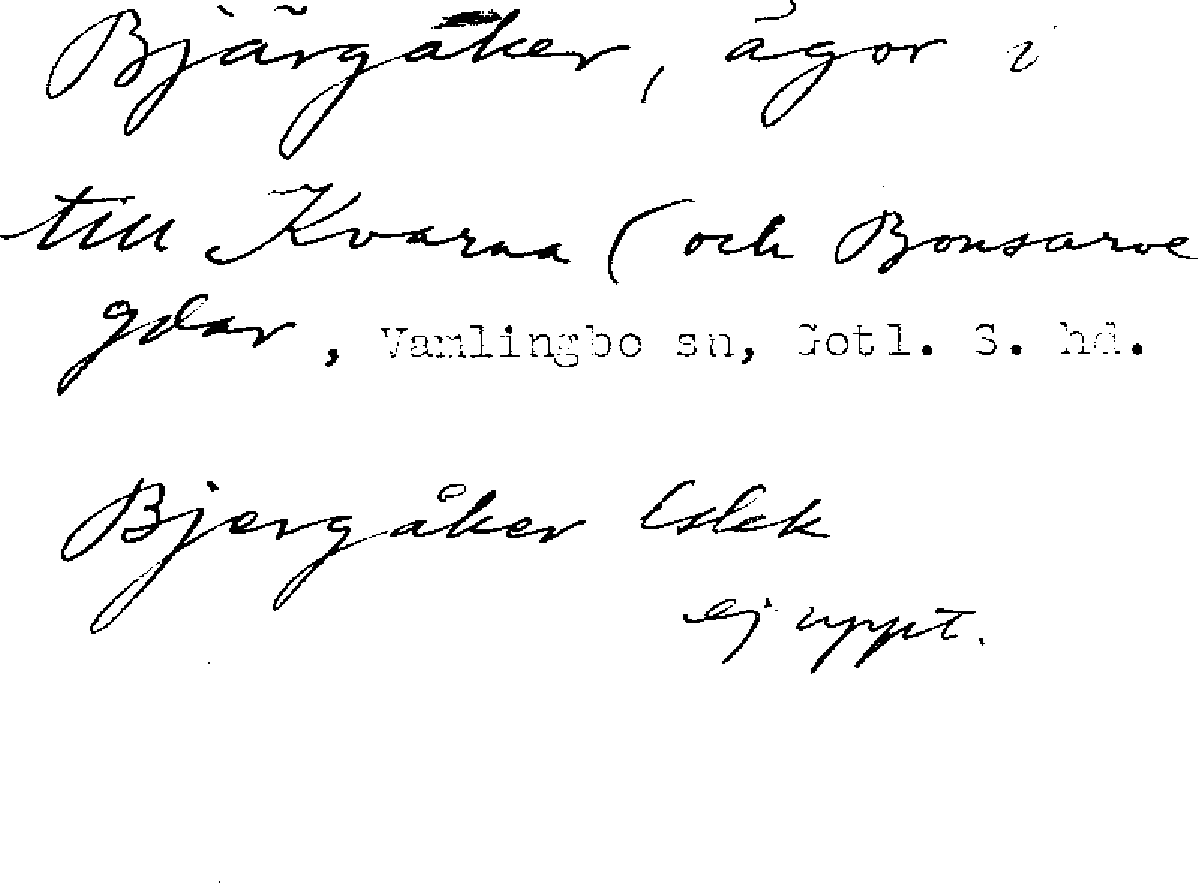 Bjärgåker, ägor i
till Kvarna (och Bonsarve
gdar, Vamlingbo sn, Gotl. S. hd.
Bjergåker Eslek
ej uppt.